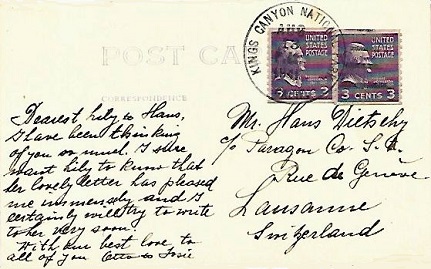 POST CA
CORRESPONDENCE
KINGS CANYON NATIONAL
AUG
UNITED STATES POSTAGE
3 CENTS 3
UNITED STATES POSTAGE
3 CENTS 3
Dearest Lily & Hans,
I have been thinking
of you so much. I sure
want Lily to know that
her lovely letter has pleased
me immensely and I
certainly will try to write
to her very soon.
With our best love to
all of you Otto & Josie
Mr. Hans Dietschy
c/o Paragon Co. S.A.
Rue de Genève
Lausanne
Switzerland